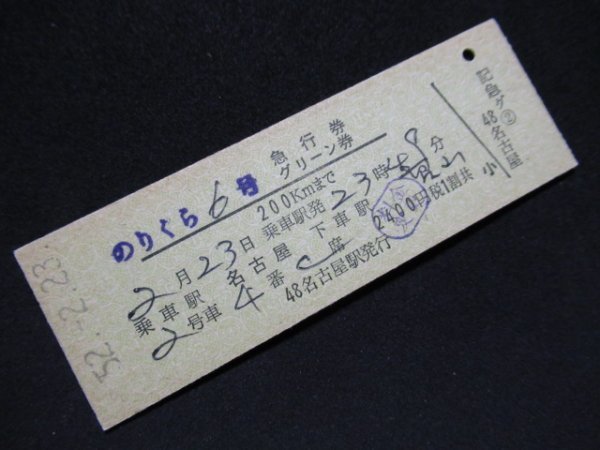 のりくら6号
急行券
グリーン券
200Kmまで
2月23日 乗車駅発 23時59分
乗車駅 名古屋 下車駅 高山
2号車 4番C席 2400円 税1割共
48名古屋駅発行
52.-2.23.
記急グ②
48名古屋
小